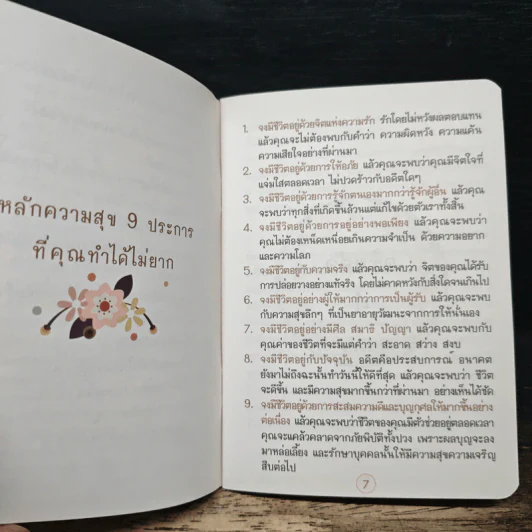 หลักความสุข 9 ประการ
ที่คุณทำได้ไม่ยาก
1. จงมีชีวิตอยู่ด้วยจิตแห่งความรัก รักโดยไม่หวังผลตอบแทน
แล้วคุณจะไม่ต้องพบกับคำว่า ความผิดหวัง ความแค้น
ความเสียใจอย่างที่ผ่านมา
2. จงมีชีวิตอยู่ด้วยการให้อภัย แล้วคุณจะพบว่าคุณมีจิตใจที่
แจ่มใสตลอดเวลา ไม่ปวดร้าวกับอดีตใดๆ
3. จงมีชีวิตอยู่ด้วยการรู้จักตนเองมากกว่ารู้จักผู้อื่น แล้วคุณ
จะพบว่าทุกสิ่งที่เกิดขึ้นล้วนแต่แก้ไขด้วยตัวเราทั้งสิ้น
4. จงมีชีวิตอยู่ด้วยการอยู่อย่างพอเพียง แล้วคุณจะพบว่า
คุณไม่ต้องเหน็ดเหนื่อยเกินความจำเป็น ด้วยความอยาก
และความโลภ
5. จงมีชีวิตอยู่กับความจริง แล้วคุณจะพบว่า จิตของคุณได้รับ
การปล่อยวางอย่างแท้จริง โดยไม่คาดหวังกับสิ่งใดจนเกินไป
6. จงมีชีวิตอยู่อย่างผู้ให้มากกว่าการเป็นผู้รับ แล้วคุณจะพบ
กับความสุขลึกๆ ที่เป็นยาอายุวัฒนะจากการให้นั่นเอง
7. จงมีชีวิตอยู่อย่างมีศีล สมาธิ ปัญญา แล้วคุณจะพบกับ
คุณค่าของชีวิตที่จะมีแต่คำว่า สะอาด สว่าง สงบ
8. จงมีชีวิตอยู่กับปัจจุบัน อดีตคือประสบการณ์ อนาคต
ยังมาไม่ถึงฉะนั้นทำวันนี้ให้ดีที่สุด แล้วคุณจะพบว่า ชีวิต
จะดีขึ้น และมีความสุขมากขึ้นกว่าที่ผ่านมา อย่างเห็นได้ชัด
9. จงมีชีวิตอยู่ด้วยการสะสมความดีและบุญกุศลให้มากขึ้นอย่าง
ต่อเนื่อง แล้วคุณจะพบว่าชีวิตของคุณมีตัวช่วยอยู่ตลอดเวลา
คุณจะแคล้วคลาดจากภัยพิบัติทั้งปวง เพราะผลบุญจะลง
มาหล่อเลี้ยง และรักษาบุคคลนั้นให้มีความสุขความเจริญ
สืบต่อไป
7